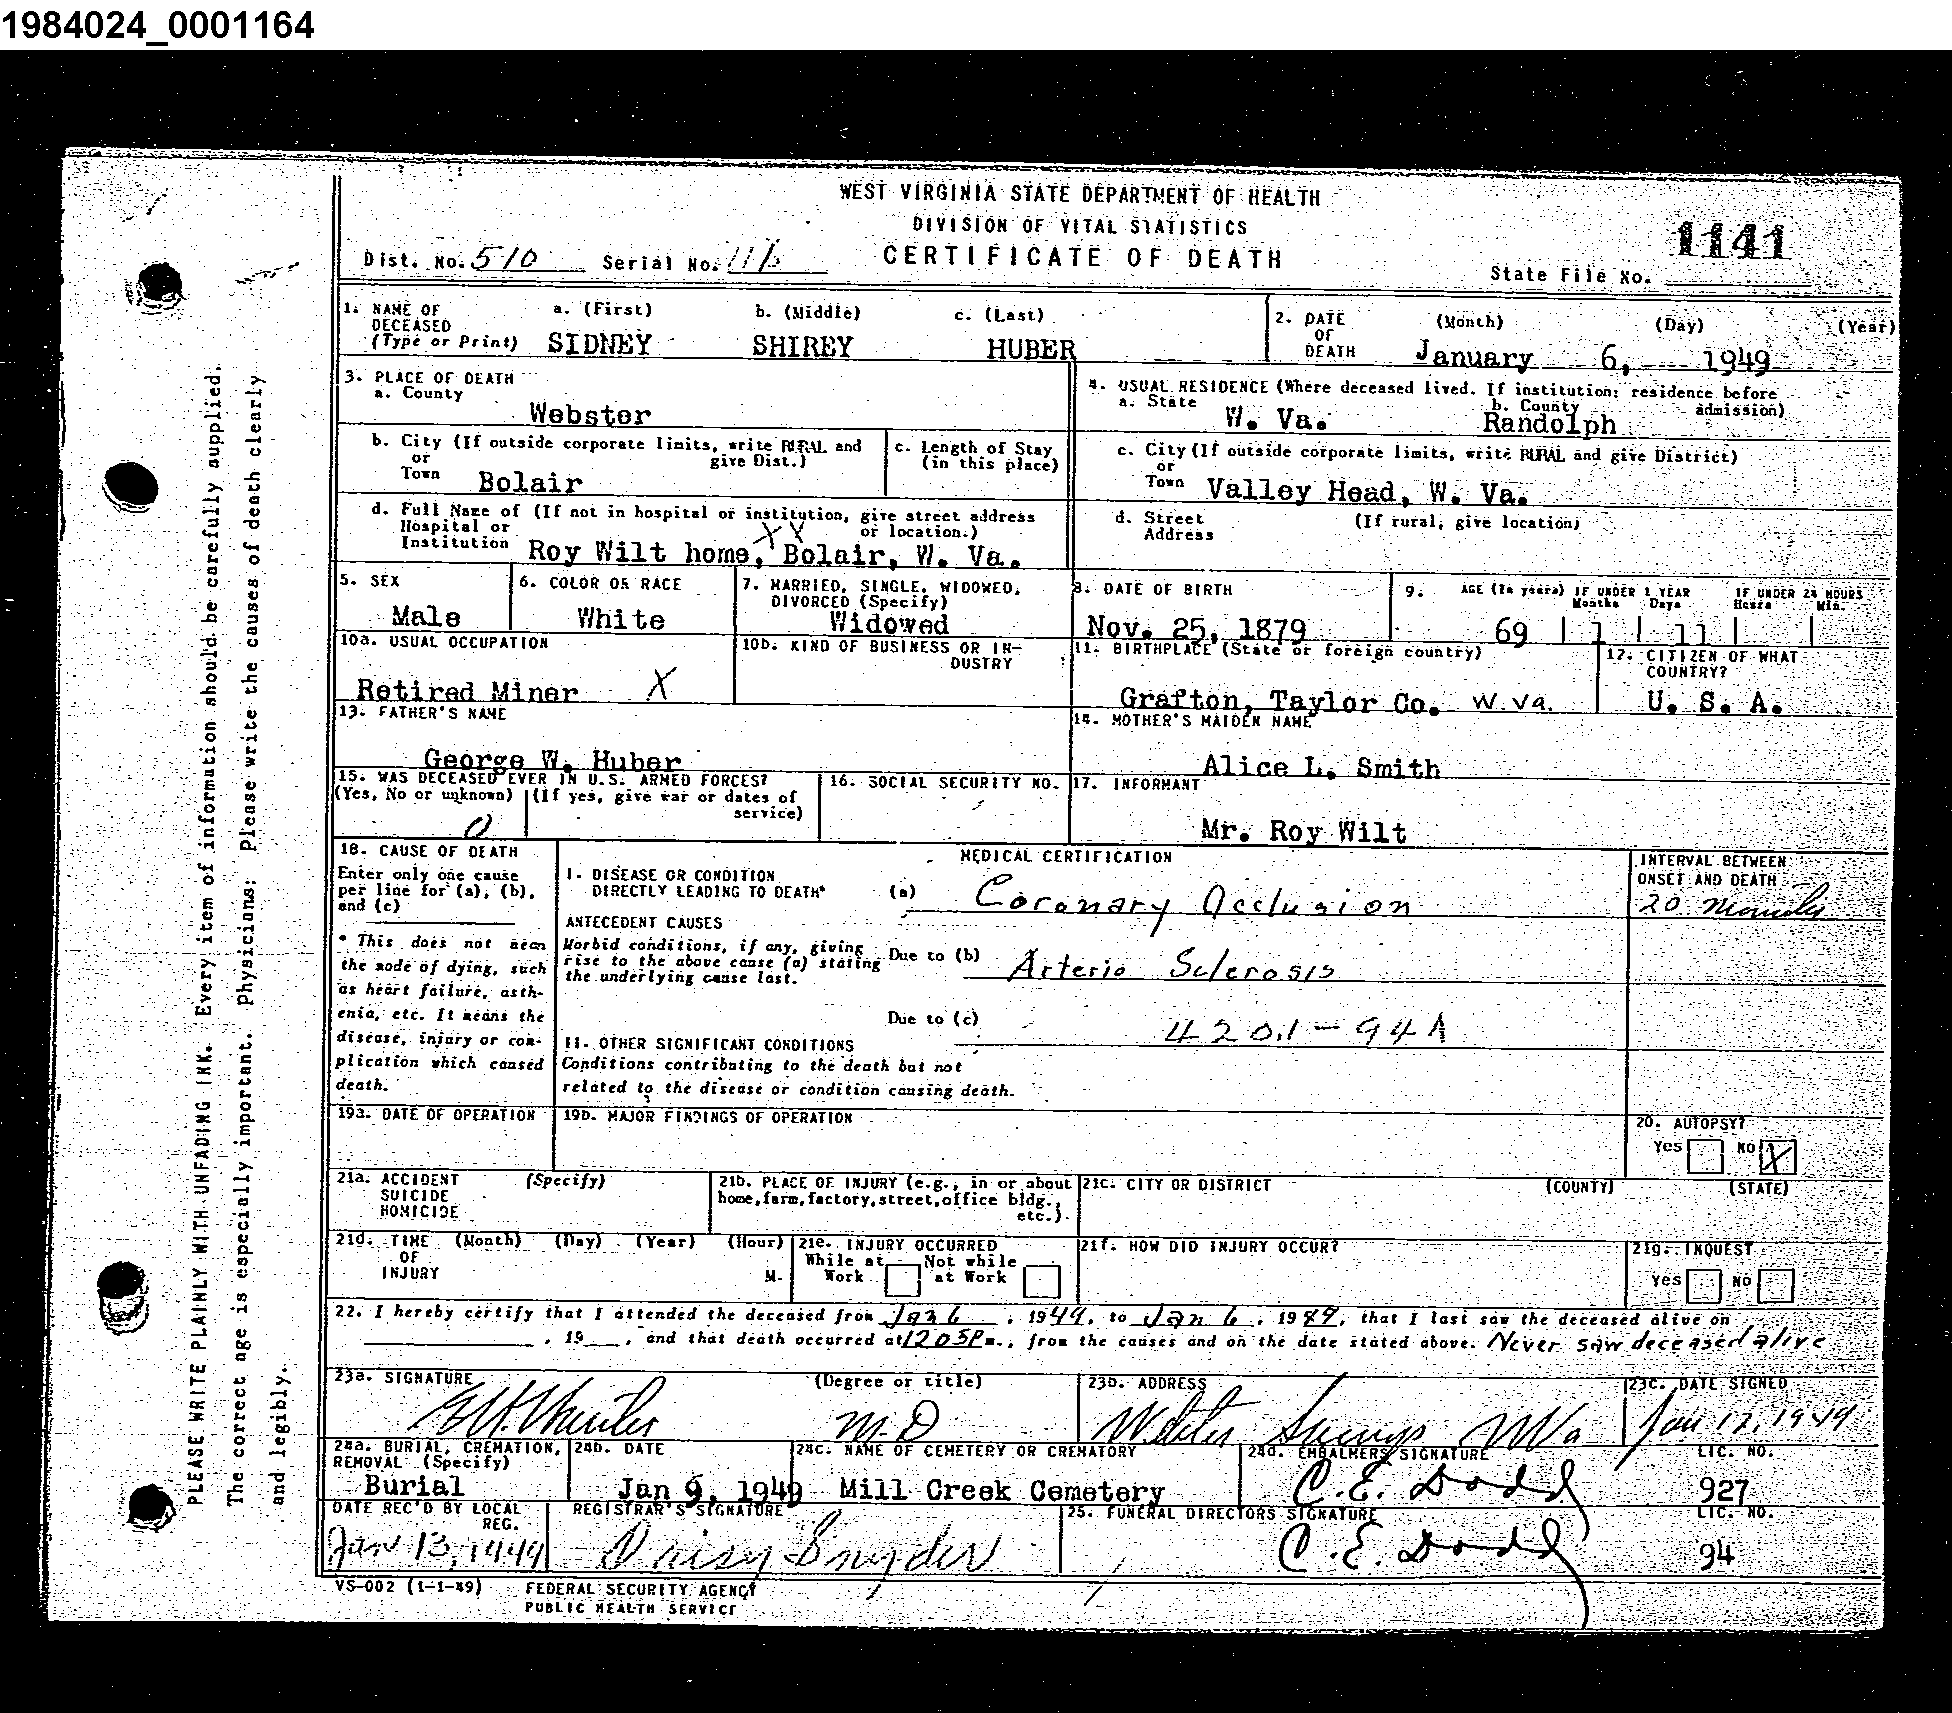 1984024_0001164
WEST VIRGINIA STATE DEPARTMENT OF HEALTH
DIVISION OF VITAL STATISTICS
CERTIFICATE OF DEATH
1141
Dist. No. 510 Serial No.
State File No.
1. NAME OF DECEASED (Type or Print) a. (First) SIDNEY b. (Middle) SHIREY c. (Last) HUBER
2. DATE OF DEATH (Month) (Day) (Year) January 6, 1949
3. PLACE OF DEATH
a. County Webster
b. City (If outside corporate limits, write RURAL and give Dist.) or Town Bolair
c. Length of Stay (in this place)
d. Full Name of (If not in hospital or institution, give street address or location.) Hospital or Institution Roy Wilt home, Bolair, W. Va.
XX
4. USUAL RESIDENCE (Where deceased lived. If institution: residence before admission)
a. State W. Va. b. County Randolph
c. City (If outside corporate limits, write RURAL and give District) or Town Valley Head, W. Va.
d. Street Address (If rural, give location)
5. SEX Male
6. COLOR OR RACE White
7. MARRIED, SINGLE, WIDOWED, DIVORCED (Specify) Widowed
8. DATE OF BIRTH Nov. 25, 1879
9. AGE (In years) 69 IF UNDER 1 YEAR Months 1 Days 11 IF UNDER 24 HOURS Hours Min.
10a. USUAL OCCUPATION Retired Miner X
10b. KIND OF BUSINESS OR INDUSTRY
11. BIRTHPLACE (State or foreign country) Grafton, Taylor Co. W. Va.
12. CITIZEN OF WHAT COUNTRY? U. S. A.
13. FATHER'S NAME George W. Huber
14. MOTHER'S MAIDEN NAME Alice L. Smith
15. WAS DECEASED EVER IN U.S. ARMED FORCES? (Yes, No or unknown) (If yes, give war or dates of service) 0
16. SOCIAL SECURITY NO.
17. INFORMANT Mr. Roy Wilt
18. CAUSE OF DEATH
Enter only one cause per line for (a), (b), and (c)
* This does not mean the mode of dying, such as heart failure, asthenia, etc. It means the disease, injury or complication which caused death.
MEDICAL CERTIFICATION
INTERVAL BETWEEN ONSET AND DEATH
I. DISEASE OR CONDITION DIRECTLY LEADING TO DEATH* (a) Coronary Occlusion 20
ANTECEDENT CAUSES
Morbid conditions, if any, giving rise to the above cause (a) stating the underlying cause last.
Due to (b) Arterio Sclerosis
Due to (c) 420.1 - 94A
II. OTHER SIGNIFICANT CONDITIONS
Conditions contributing to the death but not related to the disease or condition causing death.
19a. DATE OF OPERATION
19b. MAJOR FINDINGS OF OPERATION
20. AUTOPSY? Yes No X
21a. ACCIDENT SUICIDE HOMICIDE (Specify)
21b. PLACE OF INJURY (e.g., in or about home, farm, factory, street, office bldg., etc.)
21c. CITY OR DISTRICT (COUNTY) (STATE)
21d. TIME OF INJURY (Month) (Day) (Year) (Hour) M.
21e. INJURY OCCURRED While at Work Not while at Work
21f. HOW DID INJURY OCCUR?
21g. INQUEST Yes No
22. I hereby certify that I attended the deceased from Jan 6, 1949, to Jan 6, 1949, that I last saw the deceased alive on
, 19 , and that death occurred at 1205P m., from the causes and on the date stated above. Never saw deceased alive
23a. SIGNATURE (Degree or title) M.D
23b. ADDRESS Webster Springs W Va
23c. DATE SIGNED Jan 12, 1949
24a. BURIAL, CREMATION, REMOVAL (Specify) Burial
24b. DATE Jan 9, 1949
24c. NAME OF CEMETERY OR CREMATORY Mill Creek Cemetery
24d. EMBALMERS SIGNATURE C. E. Dodd LIC. NO. 927
DATE REC'D BY LOCAL REG. Jan 13, 1949
REGISTRAR'S SIGNATURE Daisy Snyder
25. FUNERAL DIRECTORS SIGNATURE C. E. Dodd LIC. NO. 94
VS-002 (1-1-49) FEDERAL SECURITY AGENCY
PUBLIC HEALTH SERVICE
PLEASE WRITE PLAINLY WITH UNFADING INK. Every item of information should be carefully supplied.
The correct age is especially important. Physicians: Please write the causes of death clearly
and legibly.